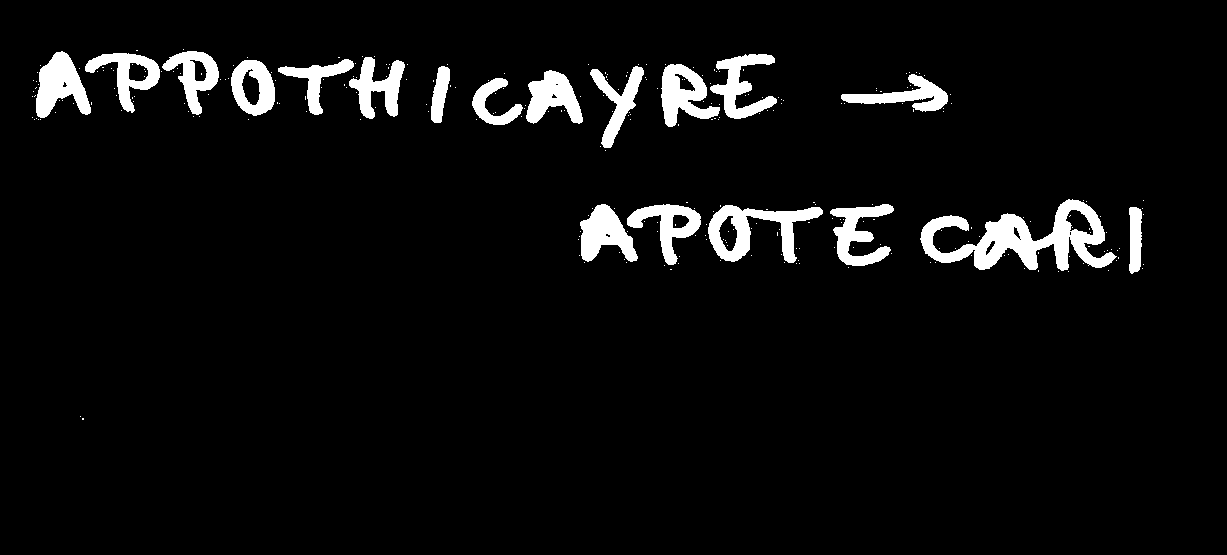 APPOTHICAYRE →
APOTECARI